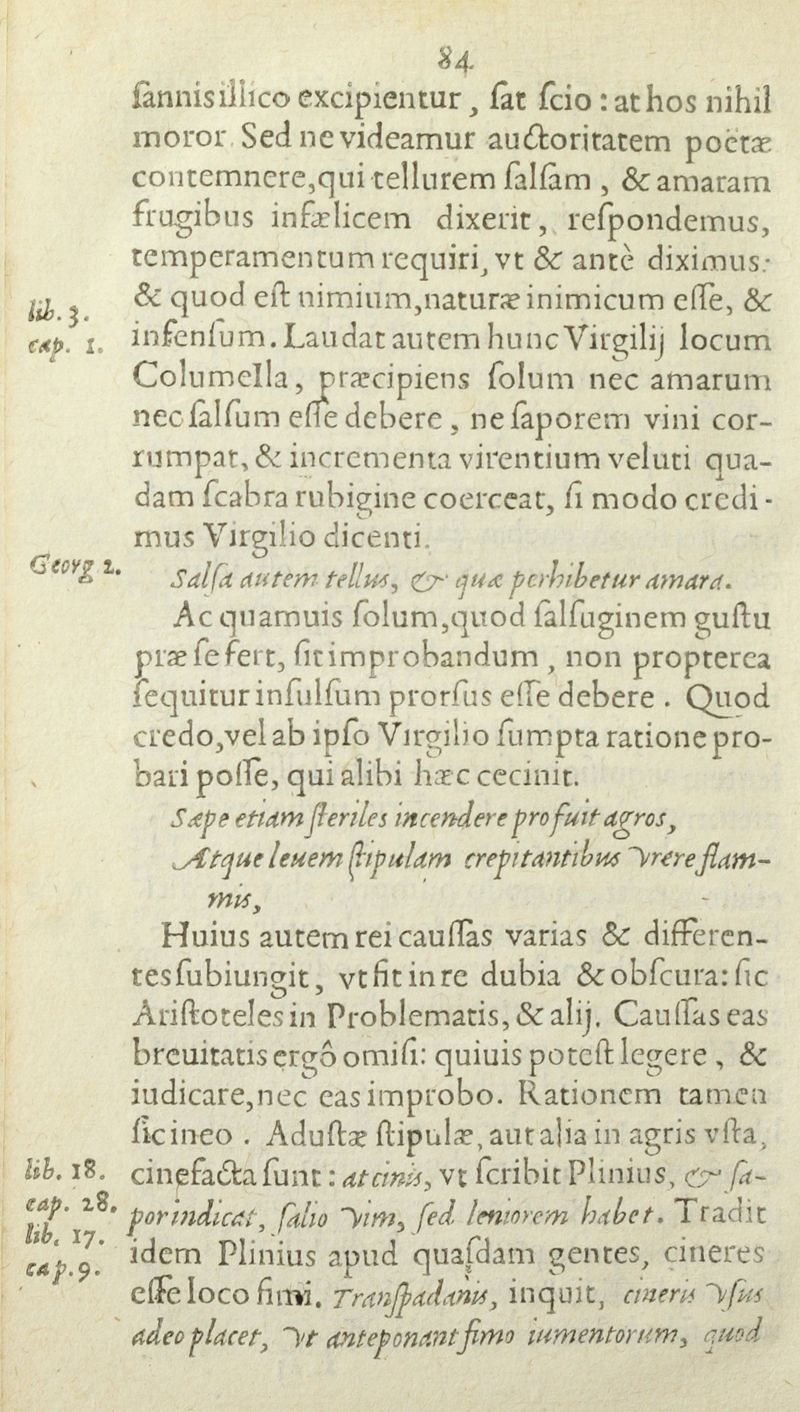 84
ſannis illico excipientur, ſat ſcio: at hos nihil
moror. Sed ne videamur auctoritatem poëtæ
contemnere, qui tellurem ſalſam, & amaram
frugibus infælicem dixerit, reſpondemus,
temperamentum requiri, vt & antè diximus:
& quod eſt nimium, naturæ inimicum eſſe, &
lib. 3.
cap. 1.
infenſum. Laudat autem hunc Virgilij locum
Columella, præcipiens ſolum nec amarum
nec ſalſum eſſe debere, ne ſaporem vini cor-
rumpat, & incrementa virentium veluti qua-
dam ſcabra rubigine coerceat, ſi modo credi-
mus Virgilio dicenti.
Georg 2.
Salſa autem tellus, & quæ perhibetur amara.
Ac quamuis ſolum, quod ſalſuginem guſtu
præ ſe fert, ſit improbandum, non propterea
ſequitur inſulſum prorſus eſſe debere. Quod
credo, vel ab ipſo Virgilio ſumpta ratione pro-
bari poſſe, qui alibi hæc cecinit.
Sæpe etiam ſteriles incendere profuit agros,
Atque leuem ſtipulam crepitantibus vrere flam-
mis,
Huius autem rei cauſſas varias & differen-
tes ſubiungit, vt fit in re dubia & obſcura: ſic
Ariſtoteles in Problematis, & alij. Cauſſas eas
breuitatis ergô omiſi: quiuis poteſt legere, &
iudicare, nec eas improbo. Rationem tamen
ſic ineo. Aduſtæ ſtipulæ, aut alia in agris vſta,
lib. 18.
cap. 28.
cinefacta ſunt: at cinis, vt ſcribit Plinius, & ſa-
porindicat, ſalio vim, ſed leniorem habet. Tradit
lib. 17.
cap. 9.
idem Plinius apud quaſdam gentes, cineres
eſſe loco fimi. Tranſpadanis, inquit, cineris vſus
adeo placet, vt anteponant fimo iumentorum, quod